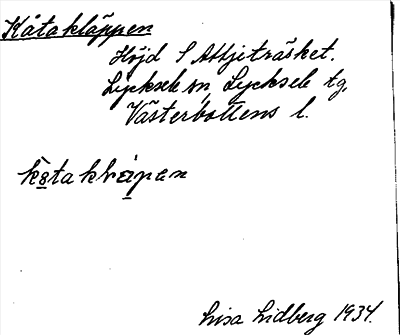 Kåtakläppen
Höjd S Attjeträsket.
Lycksele sn, Lycksele tg,
Västerbottens l.
Lisa Lidberg 1934.